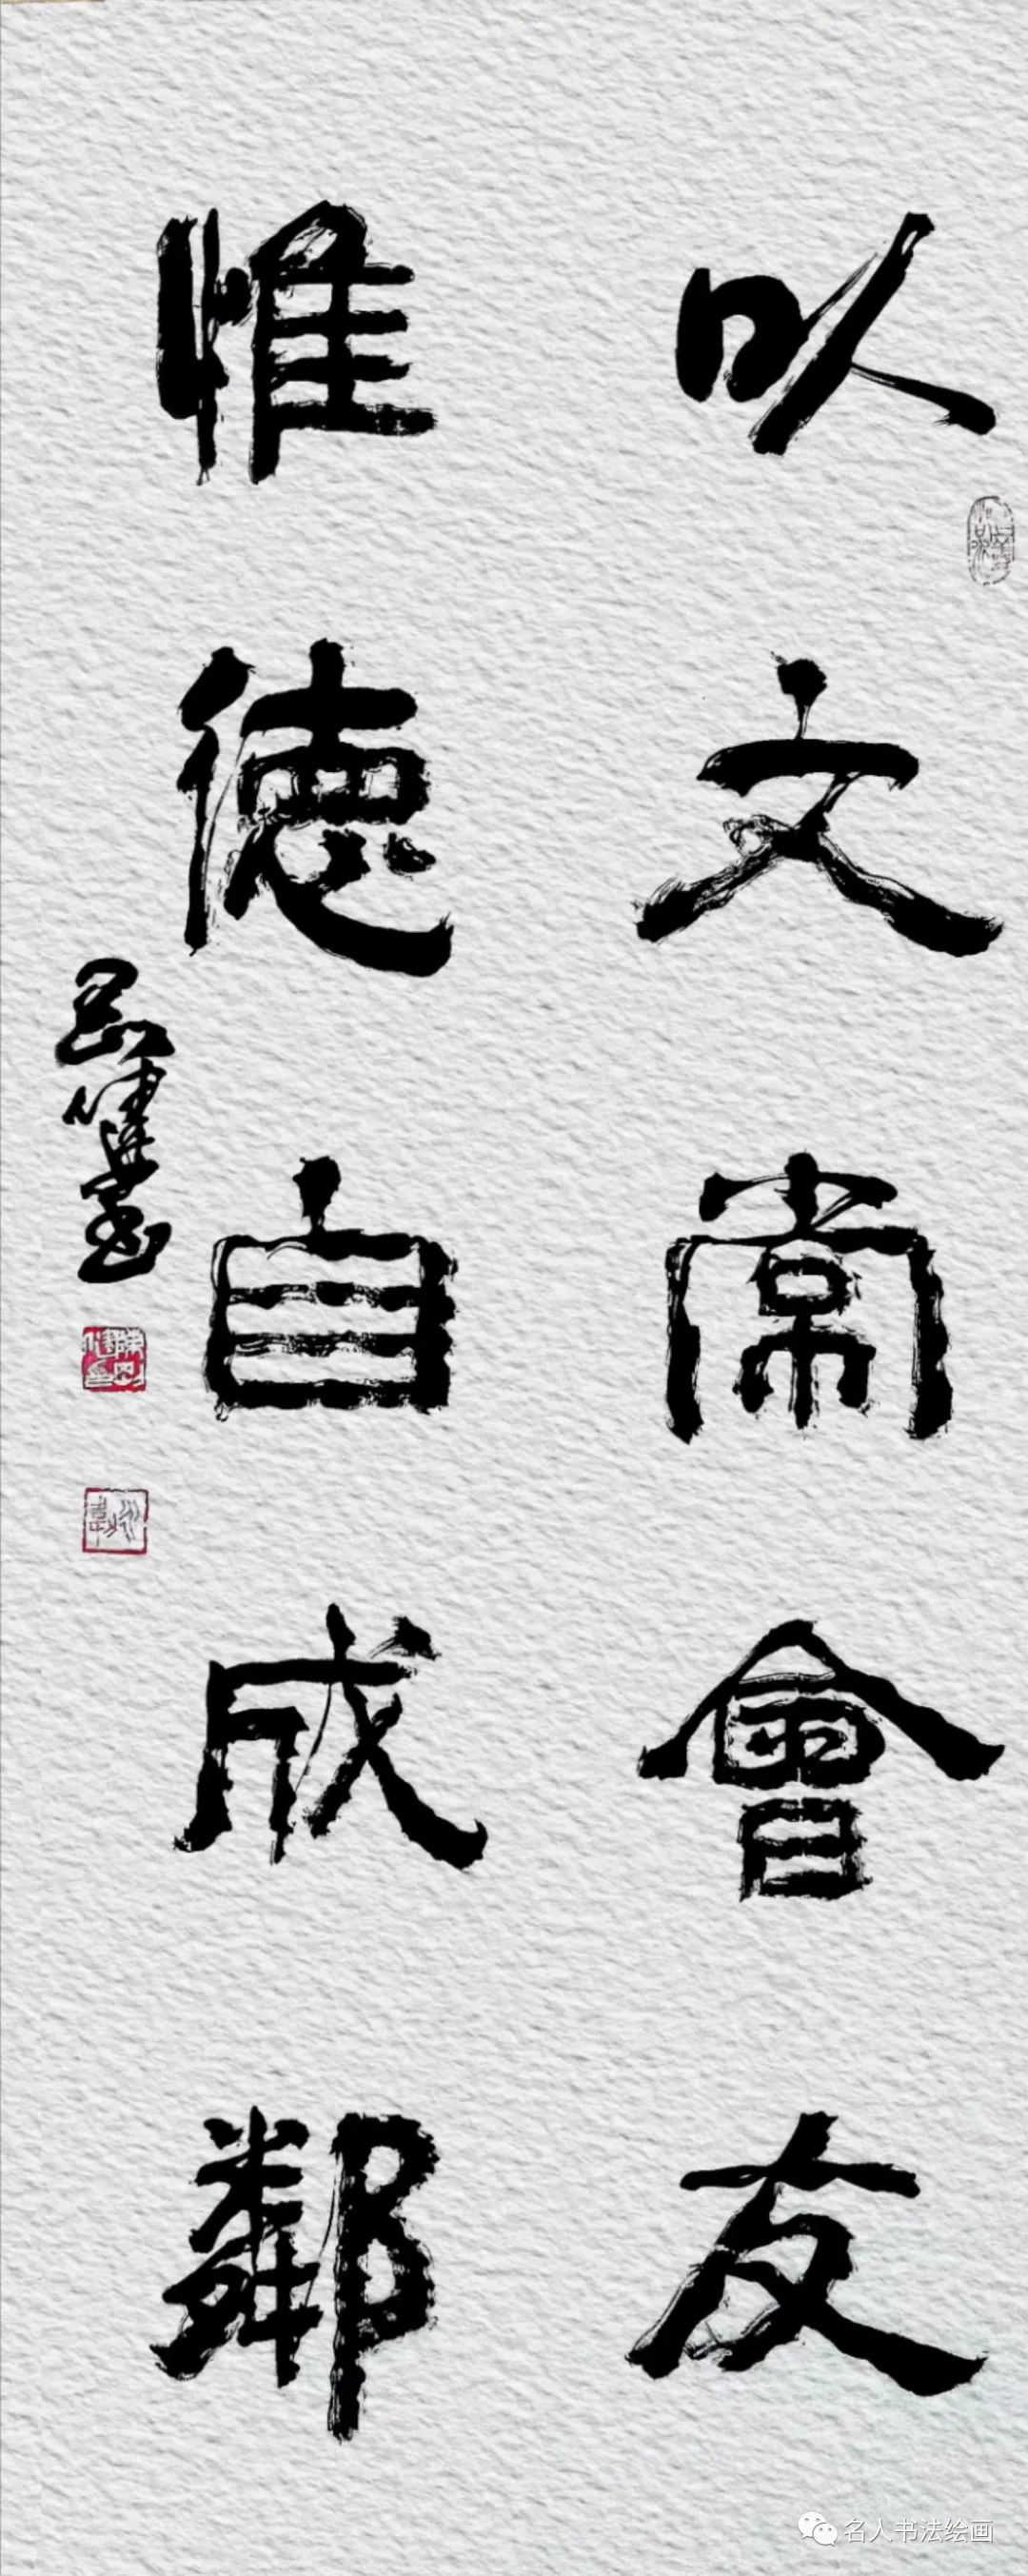 以文常會友
惟德自成鄰
名人书法绘画